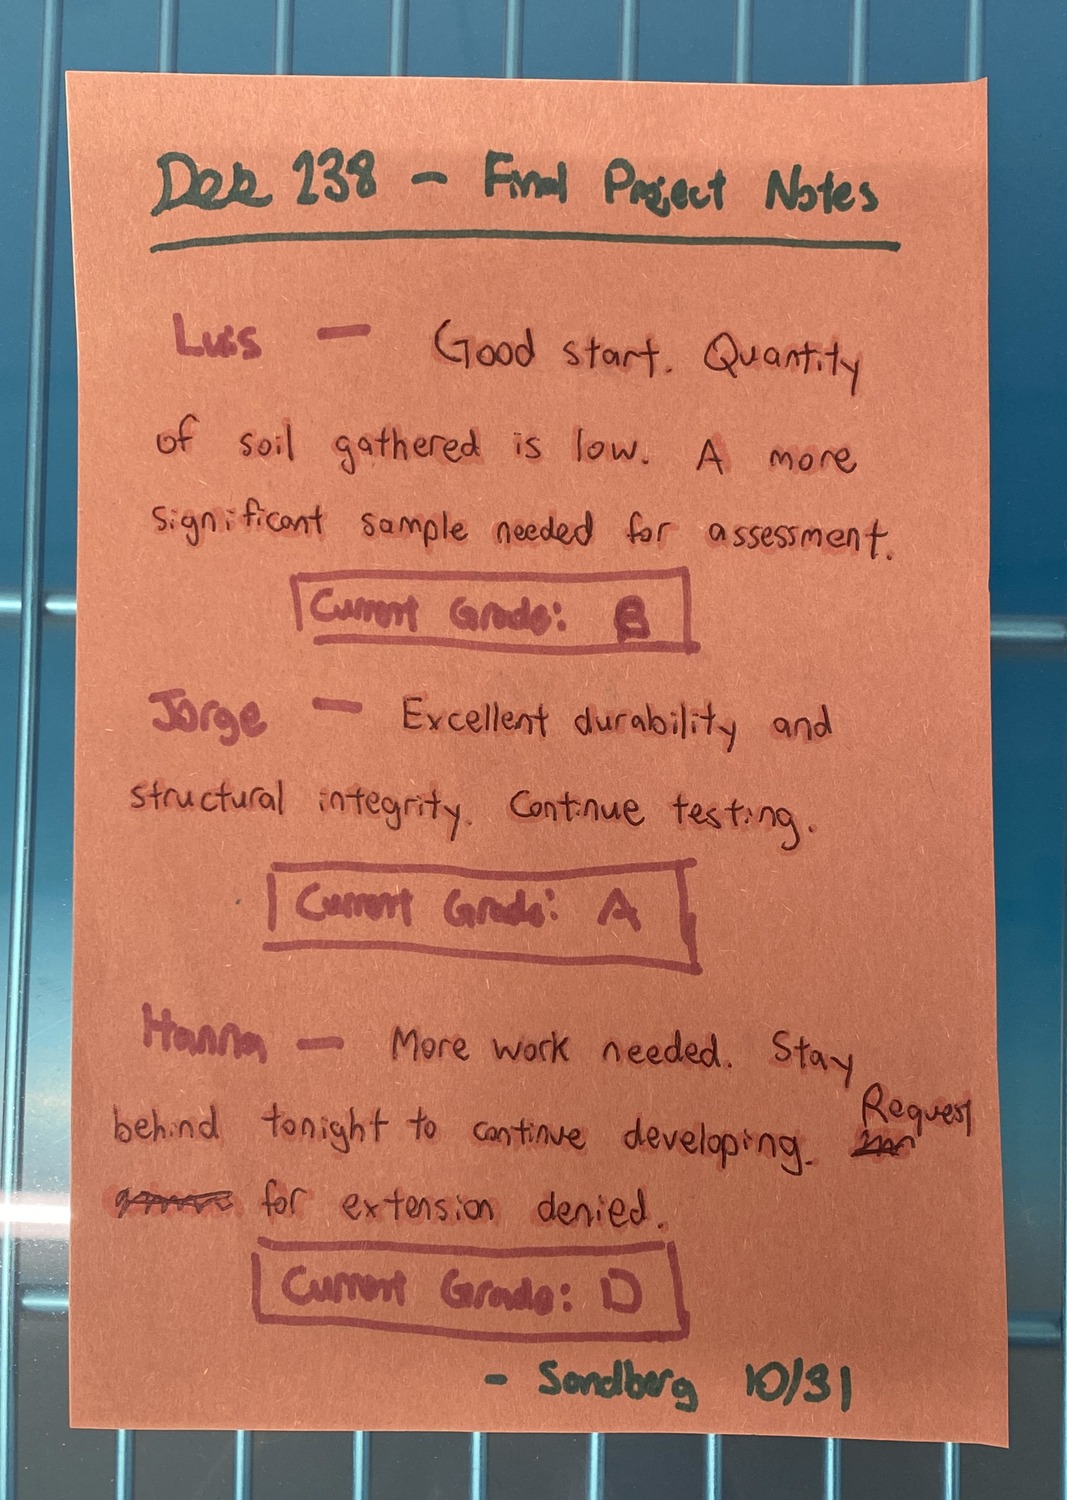 238 - Final Project Notes
Luis — Good start. Quantity
of soil gathered is low. A more
significant sample needed for assessment.
Current Grade: B
Jorge — Excellent durability and
structural integrity. Continue testing.
Current Grade: A
Hanna — More work needed. Stay
behind tonight to continue developing. Request
for extension denied.
Current Grade: D
- Sandberg 10/31